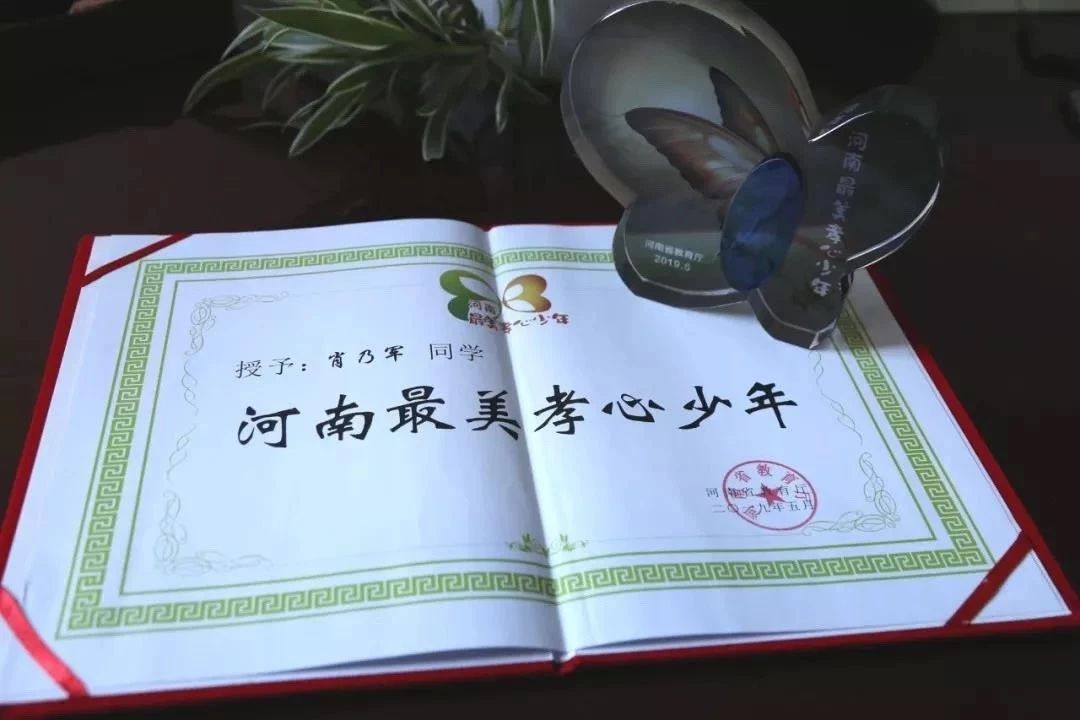 河南最美孝心少年
河南省教育厅
2019.6
河南
最美孝心少年
授予：肖乃军 同学
河南最美孝心少年
河南省教育厅
二〇一九年五月